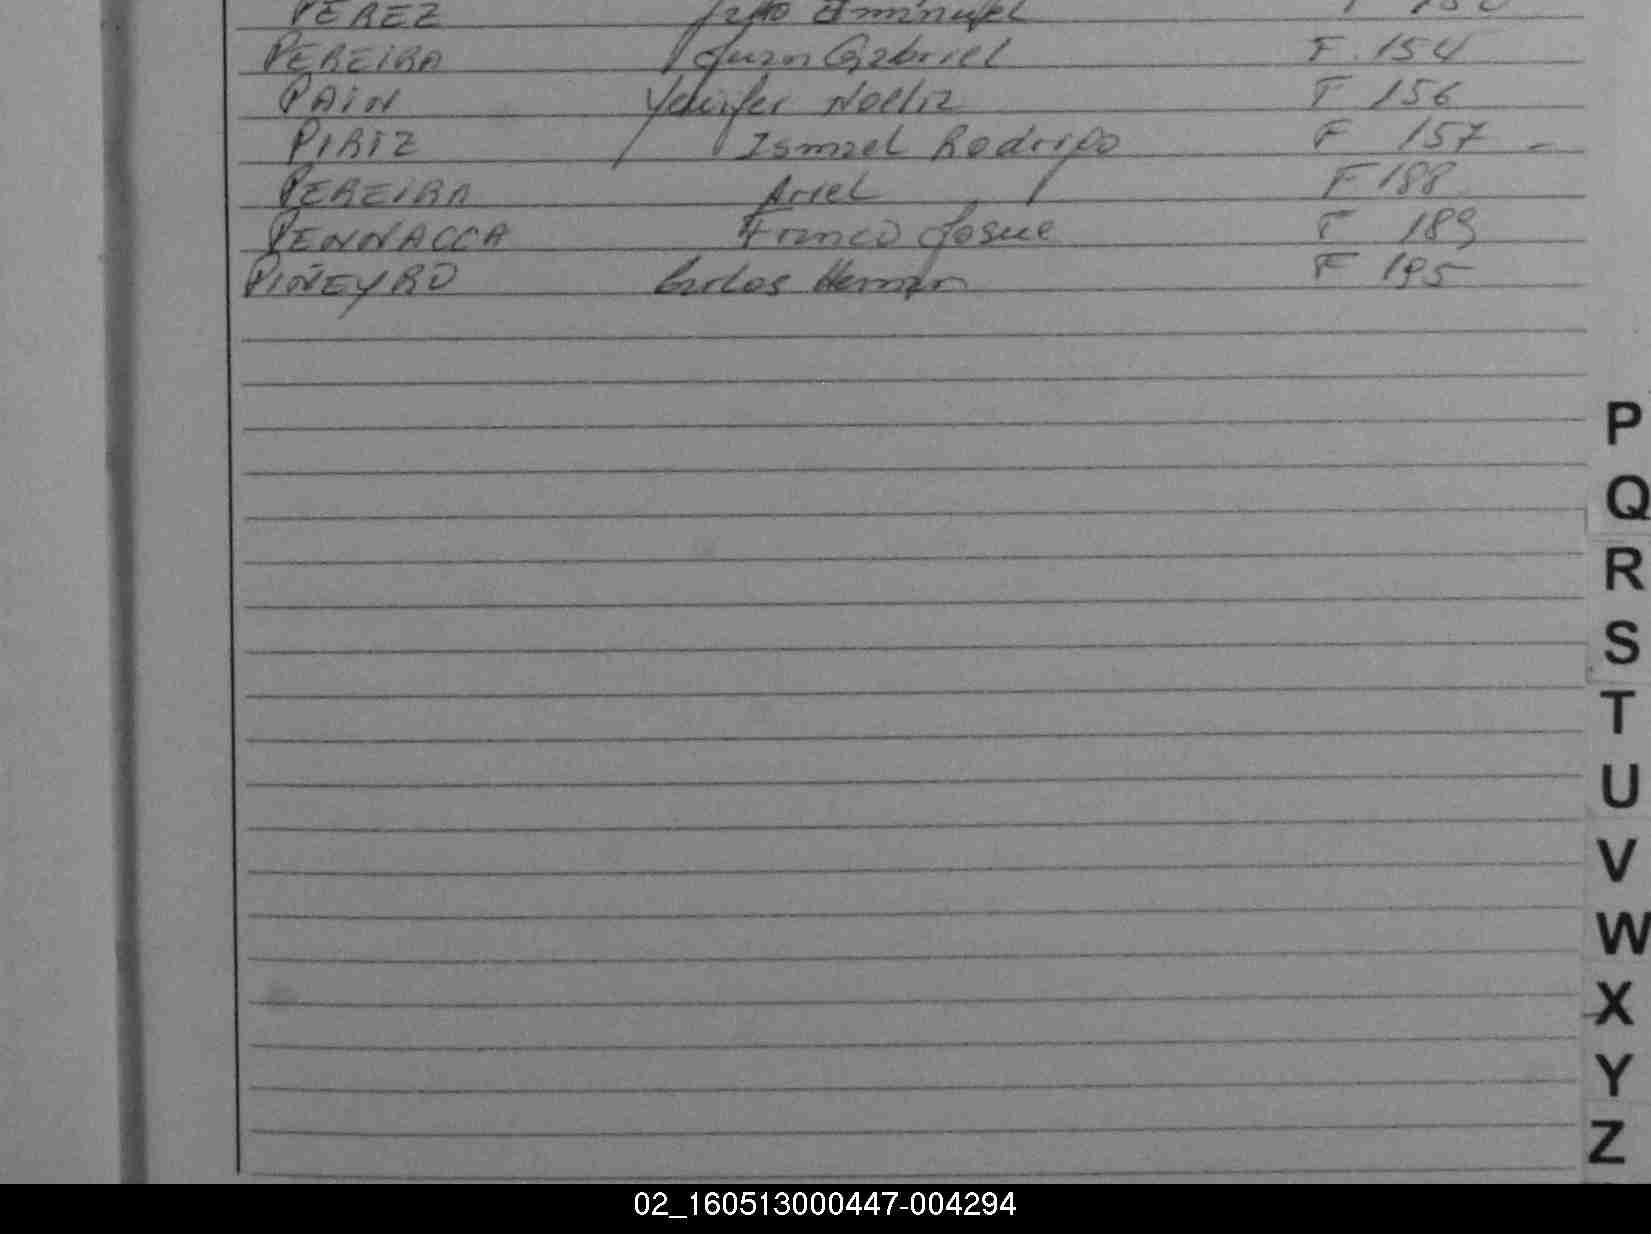 PEREZ Emanuel
PEREIRA Juan Gabriel F. 154
PAIN Yenifer Noelia F 156
PIRIZ Ismael Rodrigo F 157 -
PEREIRA Ariel F 188
PENNACCA Franco Josue F 189
PIÑEYRO Carlos Hernan F 195
P
Q
R
S
T
U
V
W
X
Y
Z
02_160513000447-004294